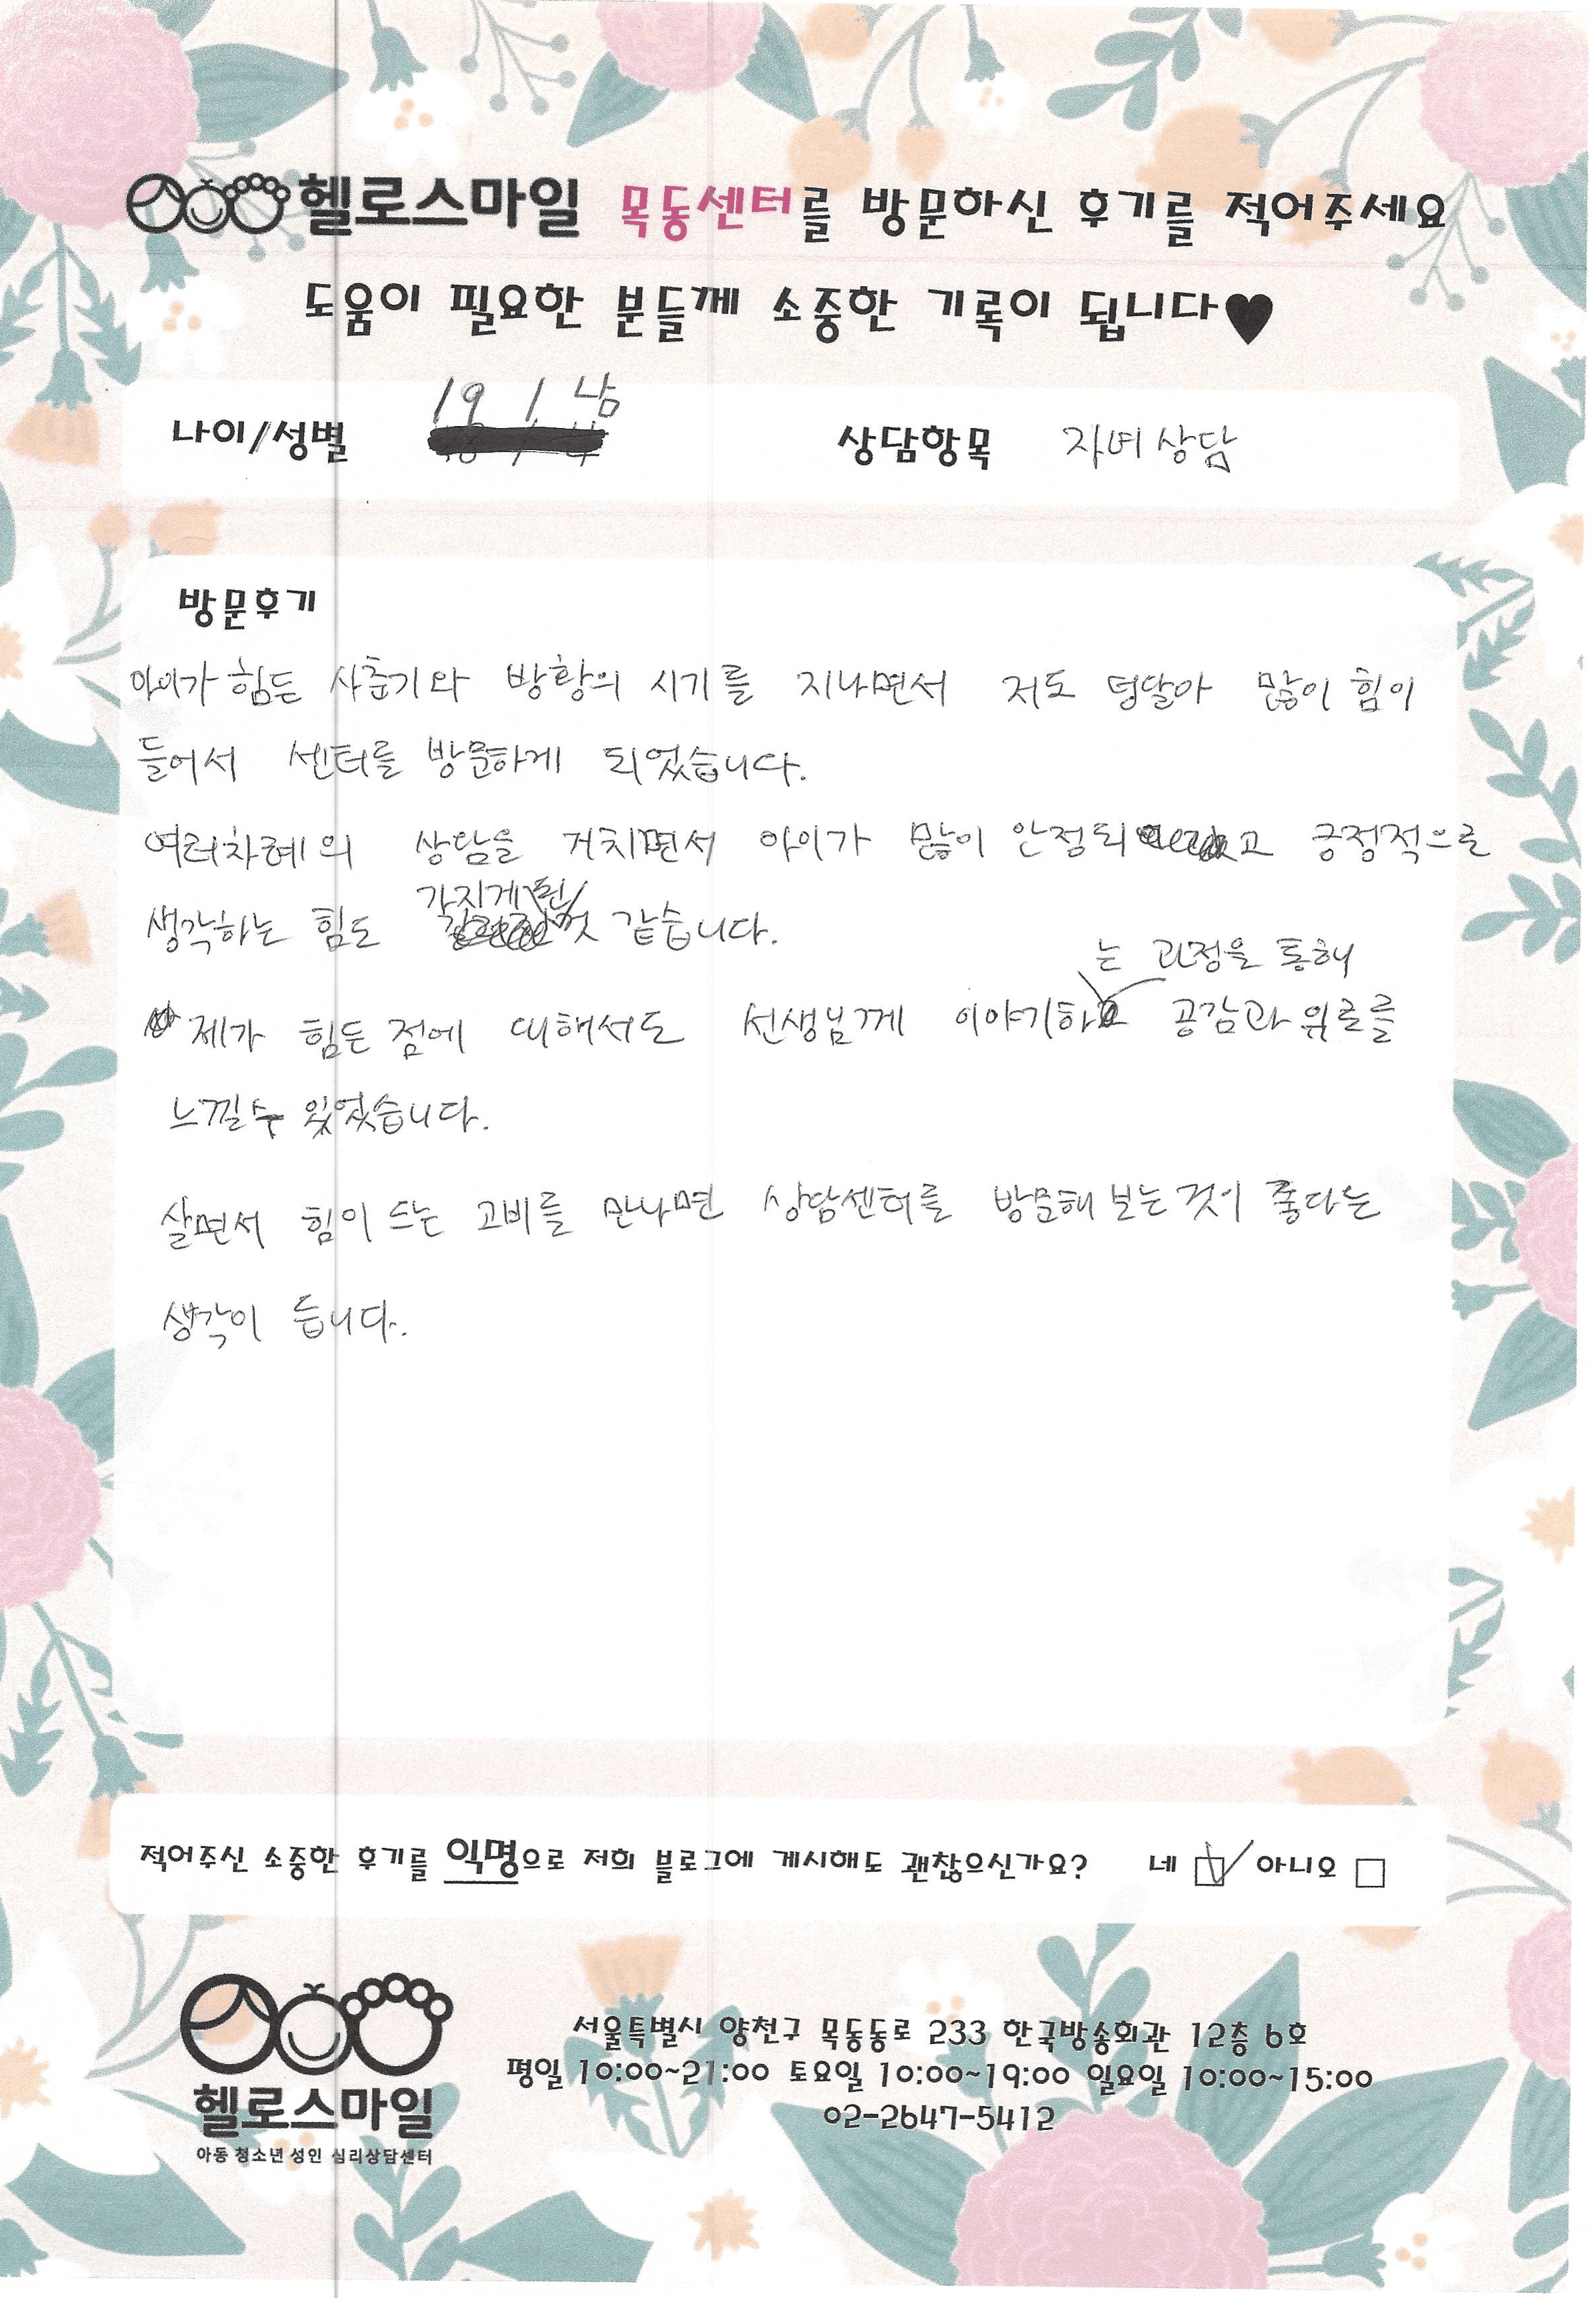 헬로스마일 목동센터를 방문하신 후기를 적어주세요
도움이 필요한 분들께 소중한 기록이 됩니다♥
나이/성별 19 / 남 상담항목 자녀 상담
방문후기
아이가 힘든 사춘기와 방황의 시기를 지나면서 저도 덩달아 많이 힘이
들어서 센터를 방문하게 되었습니다.
여러차례의 상담을 거치면서 아이가 많이 안정되고 긍정적으로
생각하는 힘도 가지게 된 것 같습니다.
는 과정을 통해
제가 힘든 점에 대해서도 선생님께 이야기하 공감과 위로를
느낄 수 있었습니다.
살면서 힘이 드는 고비를 만나면 상담센터를 방문해 보는 것이 좋다는
생각이 듭니다.
적어주신 소중한 후기를 익명으로 저희 블로그에 게시해도 괜찮으신가요? 네 ☑ 아니오 □
헬로스마일
아동 청소년 성인 심리상담센터
서울특별시 양천구 목동동로 233 한국방송회관 12층 6호
평일 10:00~21:00 토요일 10:00~19:00 일요일 10:00~15:00
02-2647-5412